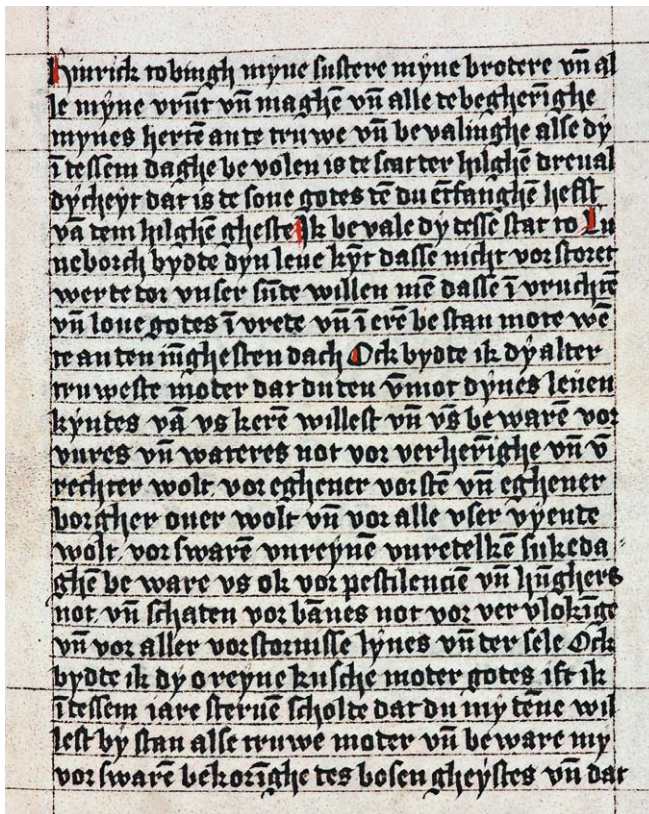 Hinrick tobingh myne sustere myne brotere vn̄ al
le myne vrūt vn̄ maghē vn̄ alle te begherīghe
mynes hertē an te truwe vn̄ bevalinghe alse dy
ī tessem daghe be volen is te scat ter hilghē dreual
dycheyt dat is te sone gotes tē du ētfanghē hefst
vā tem hilghē gheste Ik be vale dy tessē stat to Lu
neborch bydte dyn leue kỹt dasse nicht vor storet
wer te tor vnser sūte willen mē dasse ī vruchtē
vn̄ loue gotes ī vrete vn̄ ī erē be stan mote wē
te an ten īūghesten dach Ock bydte ik dy alter
truweste moter dat du ten v̄mot dynes leuen
kyntes vā vs kerē willest vn̄ vs be warē vor
vures vn̄ wateres not vor verherīghe vn̄ v̄
rechter wolt vor eghener vorstē vn̄ eghener
borgher ouer wolt vn̄ vor alle vser vyente
wolt vor swarē vnreynē vnretelkē sukeda
ghē be ware vs ok vor pestilencie vn̄ hūghers
not vn̄ schaten vor bānes not vor ver vlokīge
vn̄ vor aller vorstornisse lyues vn̄ ter sele Ock
bydte ik dy o reyne kusche moter gotes ift ik
ī tessem iare steruē scholte dat du my tēne wil
lest by stan alse truwe moter vn̄ be ware my
vor swarē bekorīghe tes bosen gheystes vn̄ dat